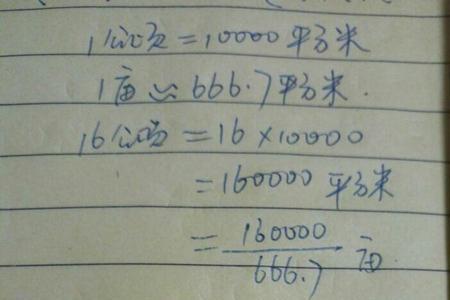 1公顷=10000平方米
1亩≈666.7平方米.
16公顷=16×10000
=160000平方米
=160000/666.7亩